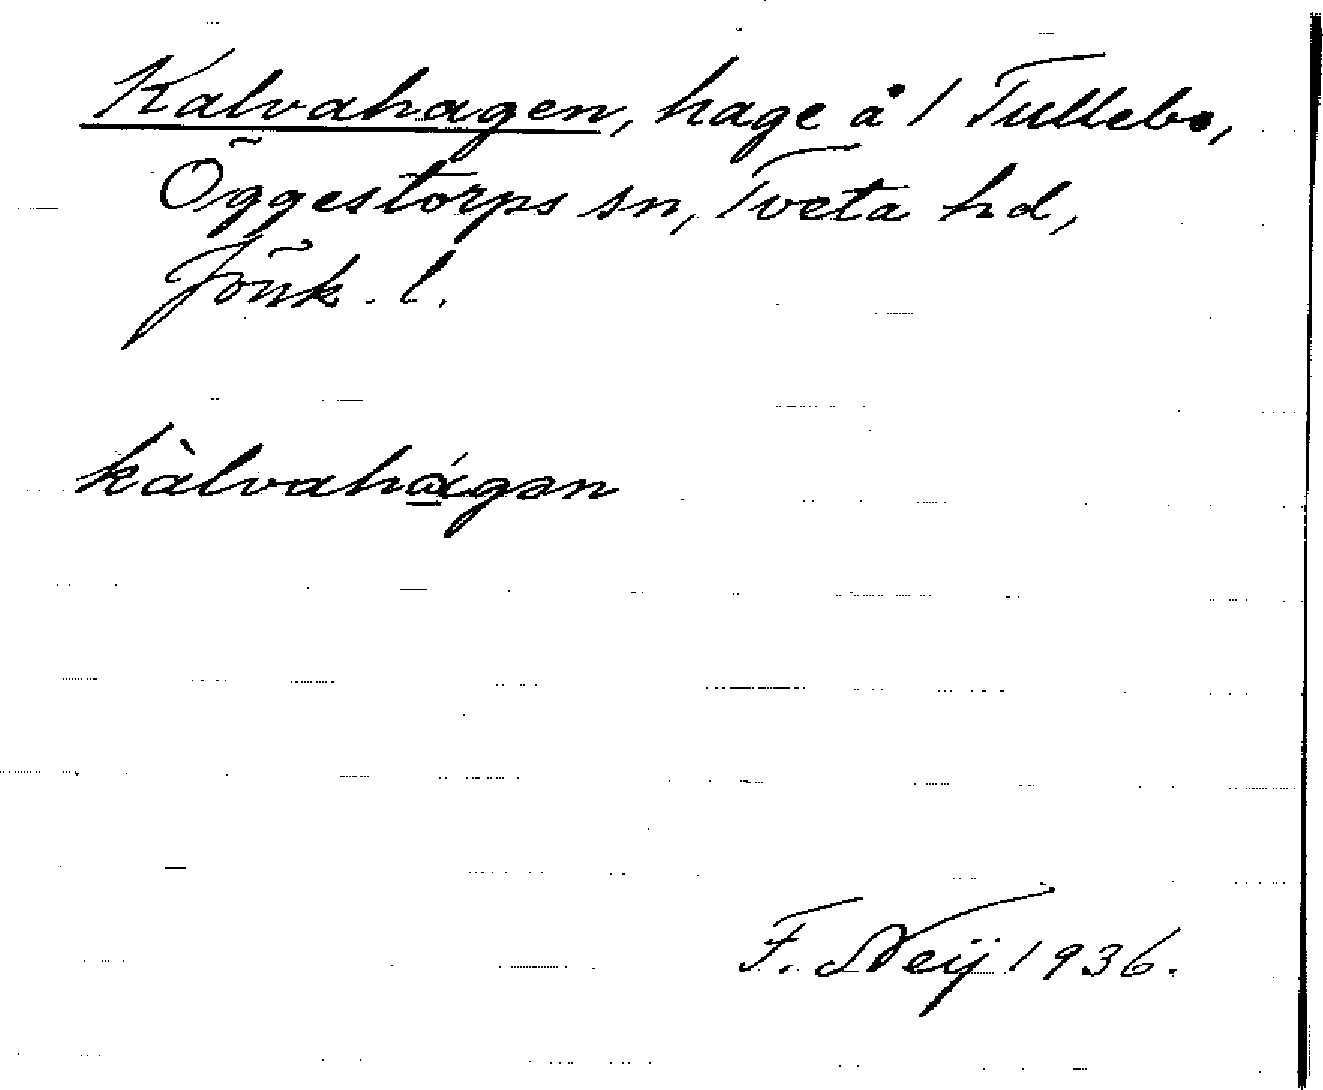 Kalvahagen, hage å 1 Tullebo,
Öggestorps sn, Tveta hd,
Jönk. l.
kàlvahɑ́gən
F. Neij 1936.